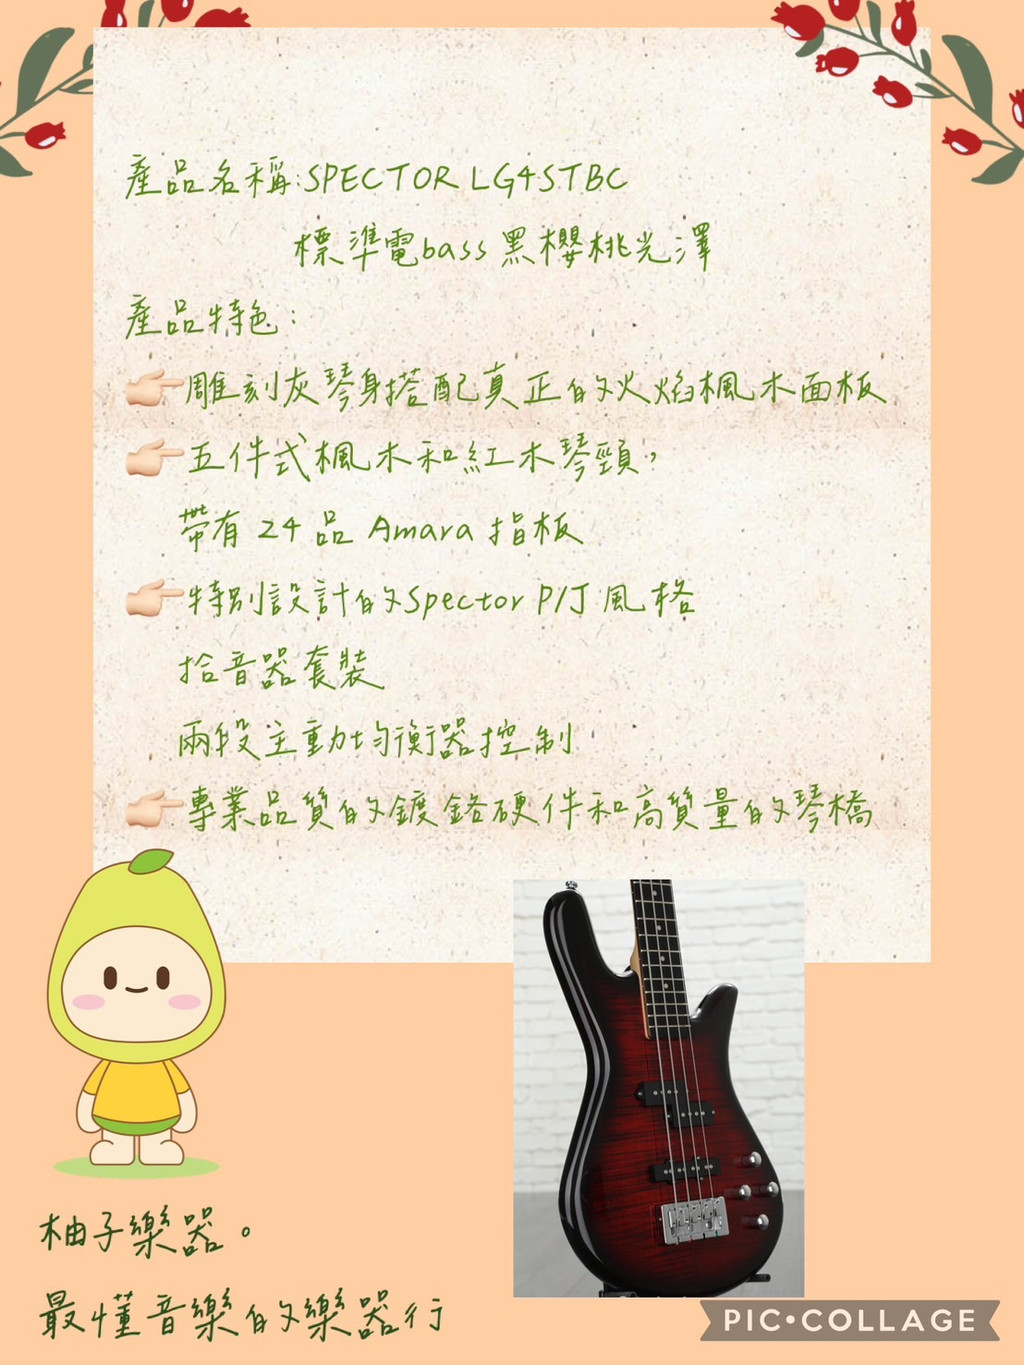 產品名稱:SPECTOR LG4STBC
標準電bass 黑櫻桃光澤
產品特色:
👉🏻雕刻灰琴身搭配真正的火焰楓木面板
👉🏻五件式楓木和紅木琴頸,
帶有 24 品 Amara 指板
👉🏻特別設計的Spector P/J 風格
拾音器套裝
兩段主動均衡器控制
👉🏻專業品質的鍍鉻硬件和高質量的琴橋
柚子樂器。
最懂音樂的樂器行
PIC•COLLAGE